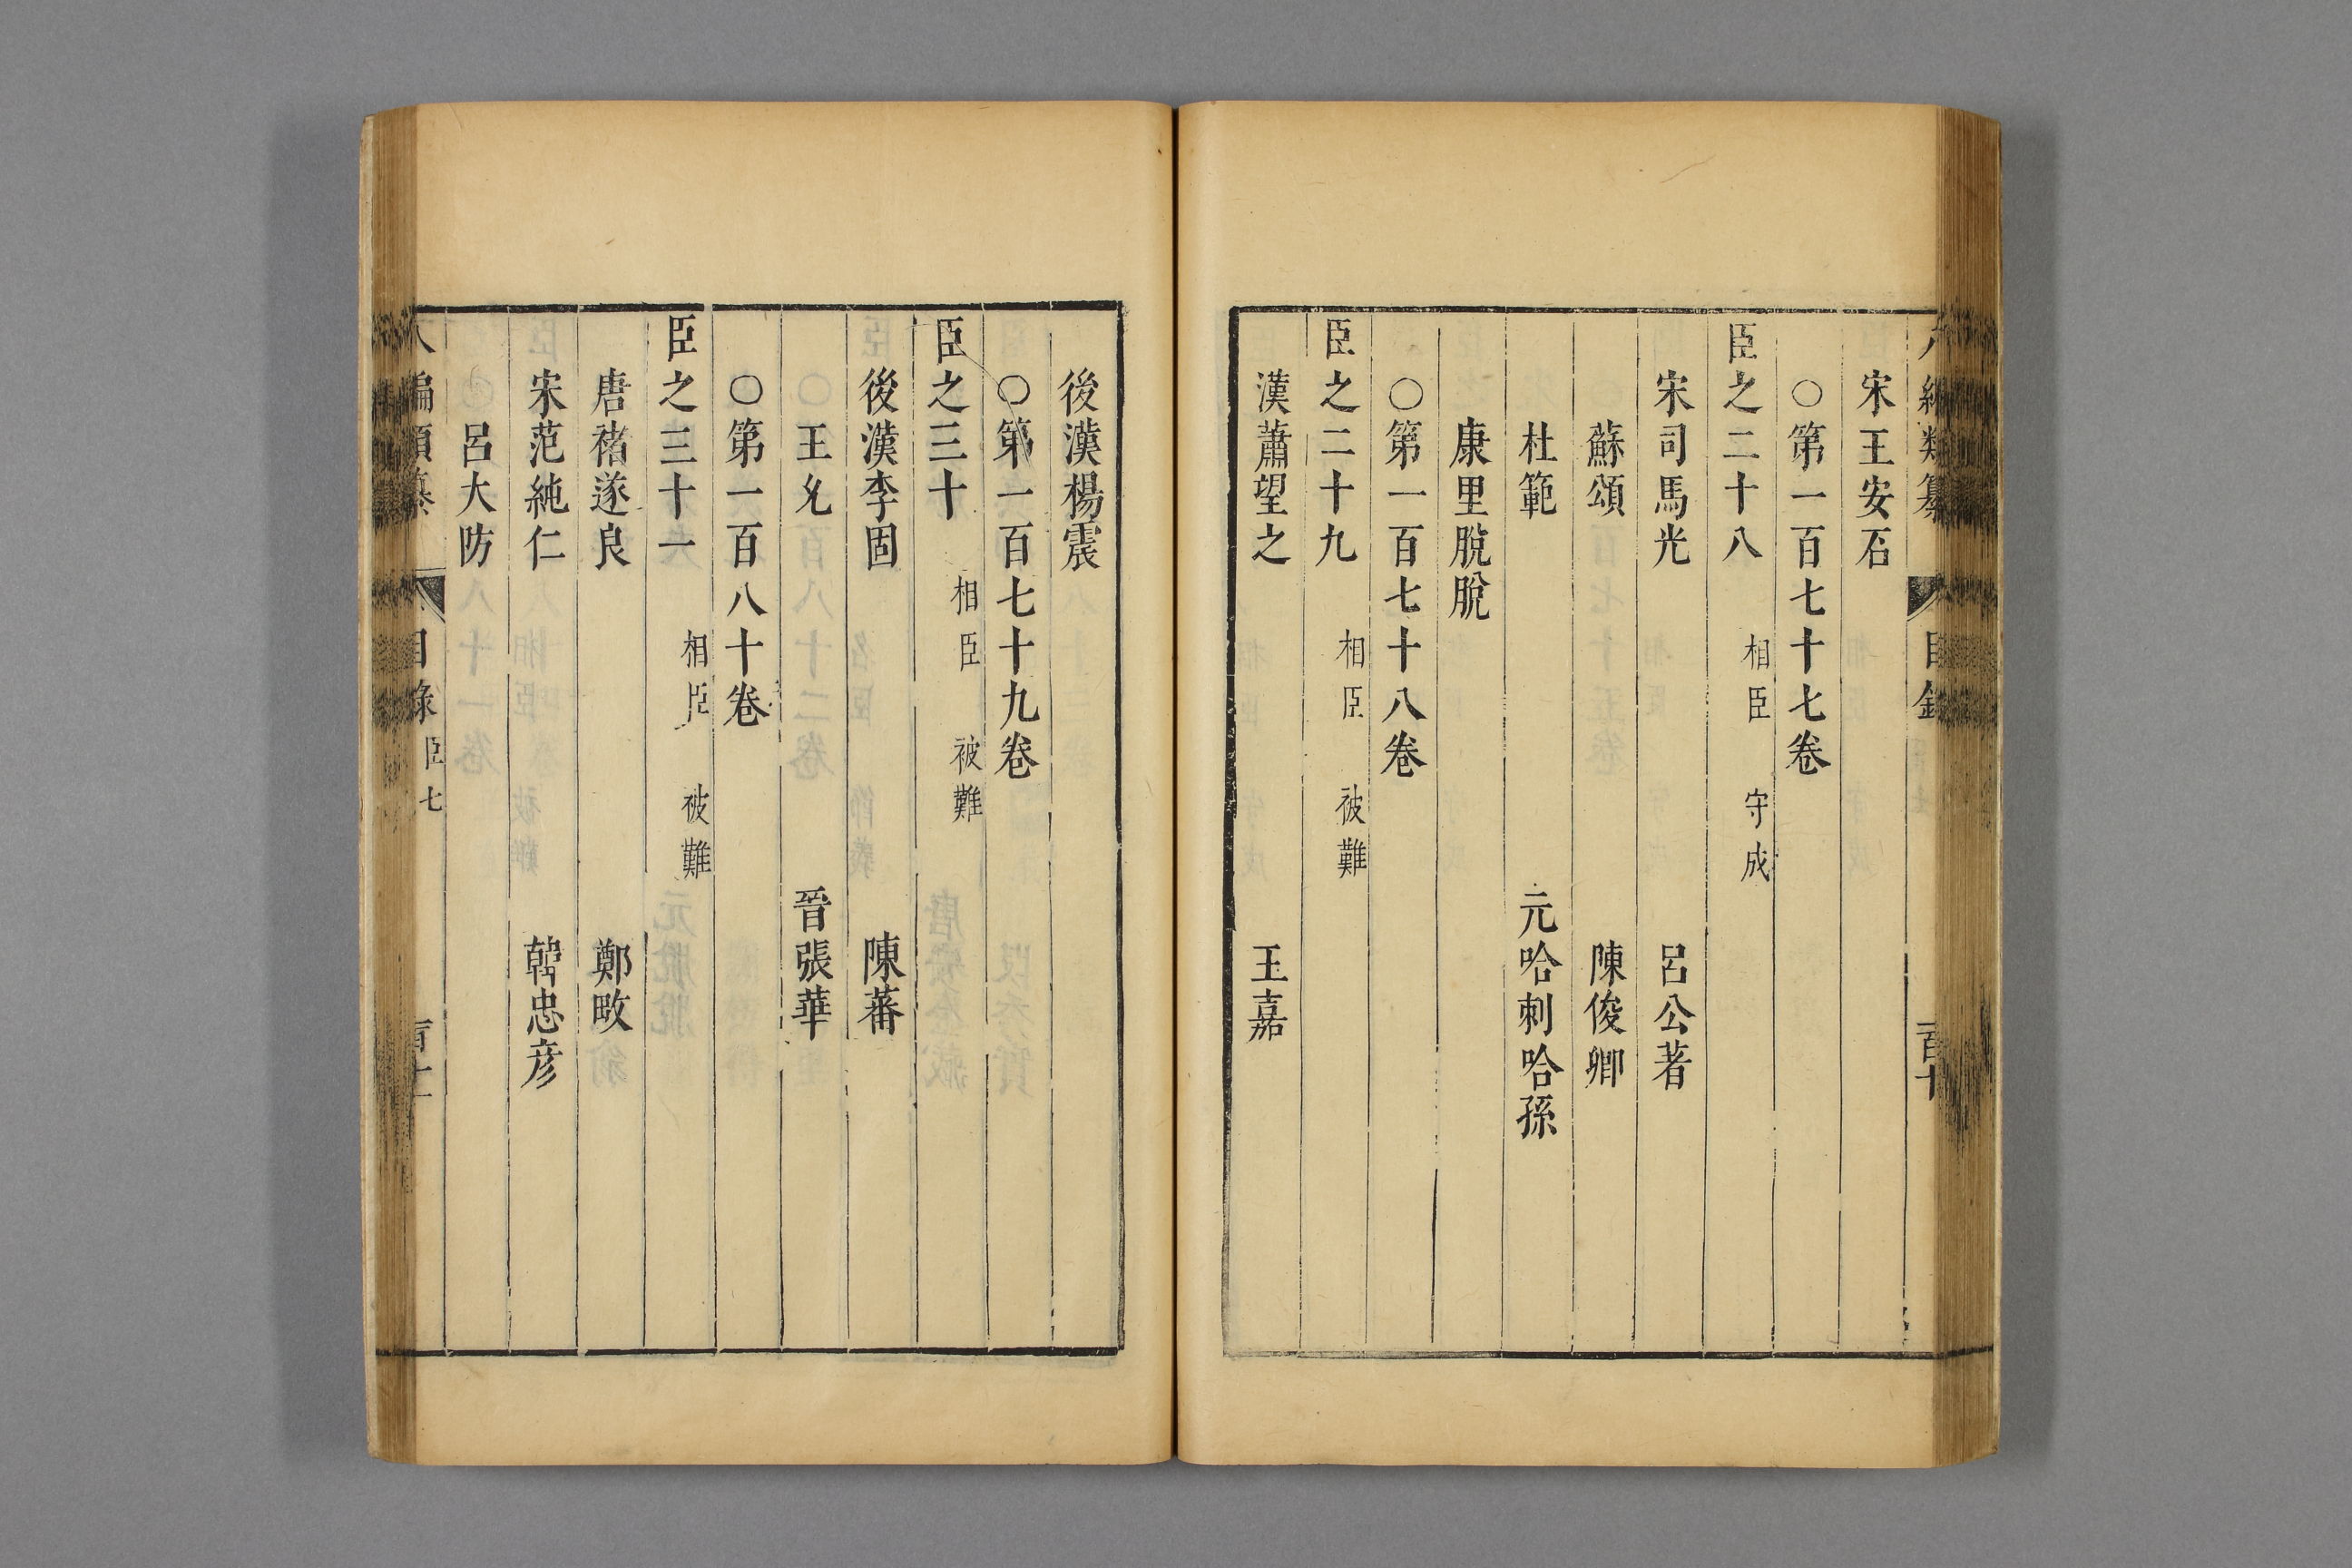 編類纂 目錄 百十
宋王安石
○第一百七十七卷
臣之二十八 相臣 守成
宋司馬光 呂公著
蘇頌 陳俊卿
杜範 元哈剌哈孫
康里脫脫
○第一百七十八卷
臣之二十九 相臣 被難
漢蕭望之 王嘉
後漢楊震
○第一百七十九卷
臣之三十 相臣 被難
後漢李固 陳蕃
王允 晉張華
○第一百八十卷
臣之三十一 相臣 被難
唐褚遂良 鄭畋
宋范純仁 韓忠彥
呂大防
八編類纂 目錄 臣七